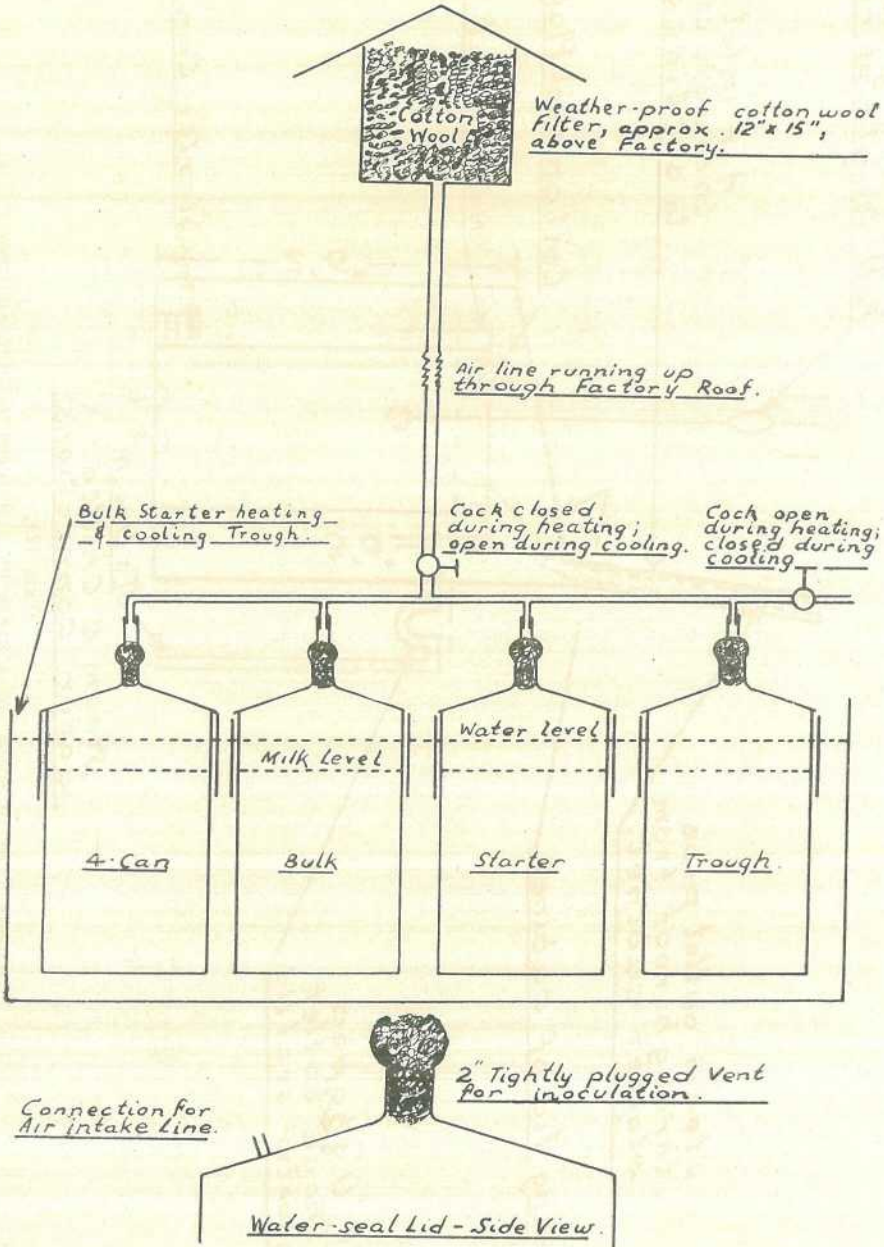 Cotton
Wool
Weather-proof cotton wool
Filter, approx. 12" x 15",
above Factory.
Air line running up
through Factory Roof.
Bulk Starter heating
& cooling Trough.
Cock closed
during heating;
open during cooling.
Cock open
during heating;
closed during
cooling
Water level
Milk Level
4-Can
Bulk
Starter
Trough.
2" Tightly plugged Vent
for inoculation.
Connection for
Air intake Line.
Water-seal Lid - Side View.